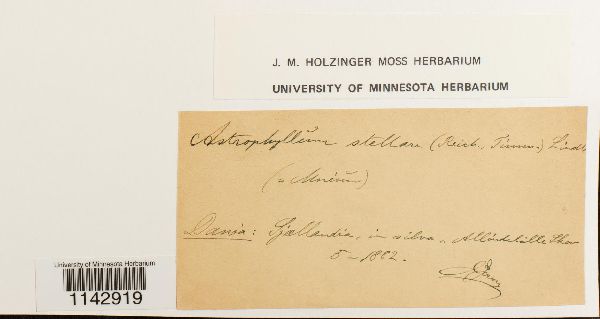 J. M. HOLZINGER MOSS HERBARIUM
UNIVERSITY OF MINNESOTA HERBARIUM
Astrophyllum stellare (Reich., Timm.) Lindb
(= Mnium)
Dania: Sjællandia, in silva
5-1882.
University of Minnesota Herbarium
1142919